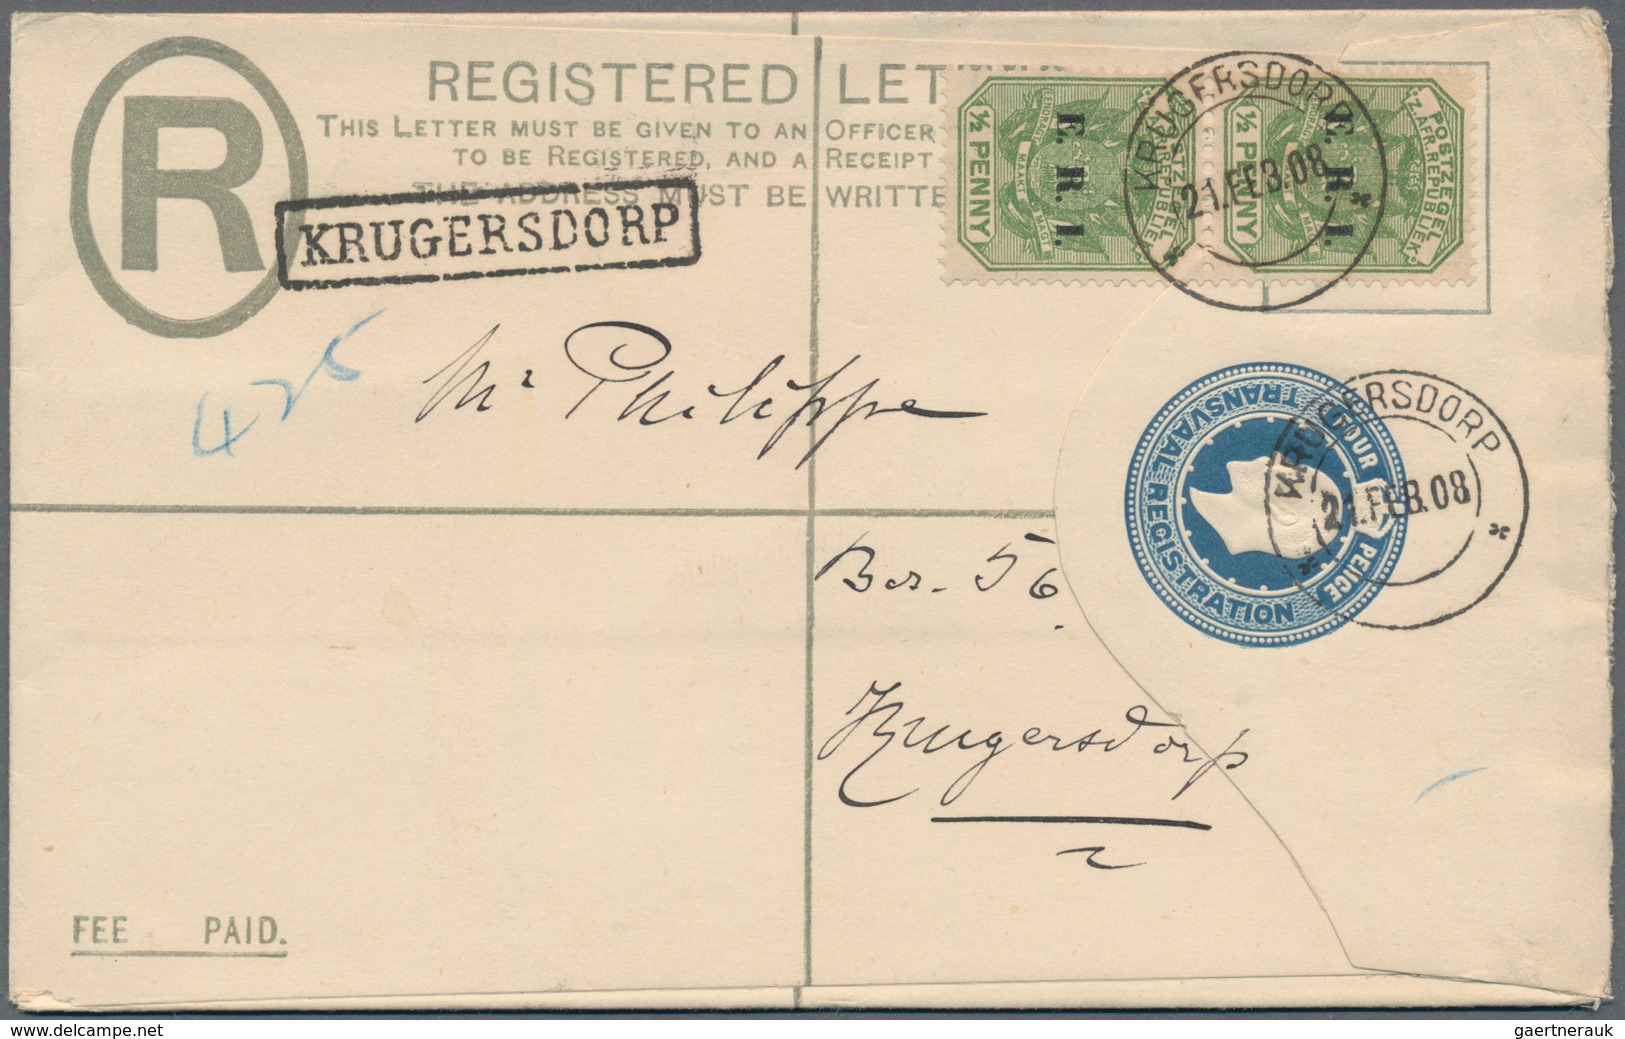 R
REGISTERED LET
THIS LETTER MUST BE GIVEN TO AN OFFICER
TO BE REGISTERED, AND A RECEIPT
THE ADDRESS MUST BE WRITTE
KRUGERSDORP
½ PENNY
EENDRAGT MAAKT MAGT
E. R. I.
POSTZEGEL
Z. AFR. REPUBLIEK
½ PENNY
E. R. I.
KRUGERSDORP
21.FEB.08
425
Mr Philippe
TRANSVAAL REGISTRATION
FOUR PENCE
KRUGERSDORP
21.FEB.08
Box. 56.
Krugersdorp
FEE PAID.
www.delcampe.net
gaertnerauk